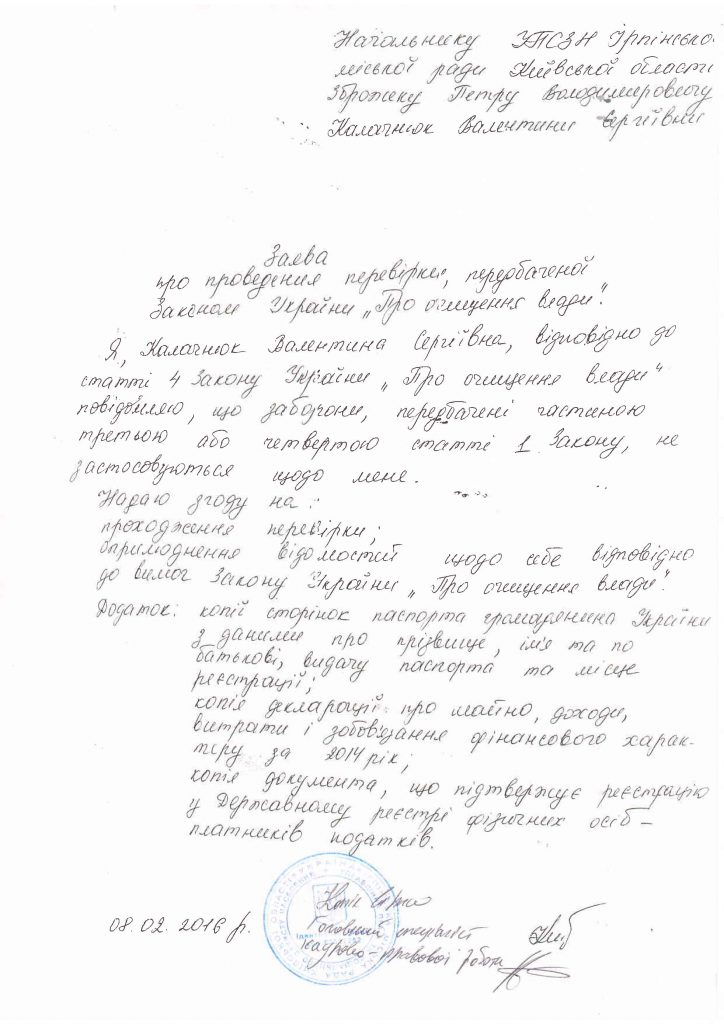 Начальнику УТСЗН Ірпінсько
міської ради Київської області
Зброжеку Петру Володимировичу
Калачнюк Валентини Сергіївни
Заява
про проведення перевірки, передбаченої
Законом України „Про очищення влади".
Я, Калачнюк Валентина Сергіївна, відповідно до
статті 4 Закону України „Про очищення влади"
повідомляю, що заборони, передбачені частиною
третьою або четвертою статті 1 Закону, не
застосовуються щодо мене.
Надаю згоду на:
проходження перевірки;
оприлюднення відомостей щодо себе відповідно
до вимог Закону України „Про очищення влади".
Додаток: копії сторінок паспорта громадянина України
з даними про прізвище, ім'я та по
батькові, видачу паспорта та місце
реєстрації;
копія декларації про майно, доходи,
витрати і зобов'язання фінансового харак-
теру за 2014 рік;
копія документа, що підтверджує реєстрацію
у Державному реєстрі фізичних осіб –
платників податків.
08.02.2016 р.
Головний спеціаліст
кадрово-правової роботи